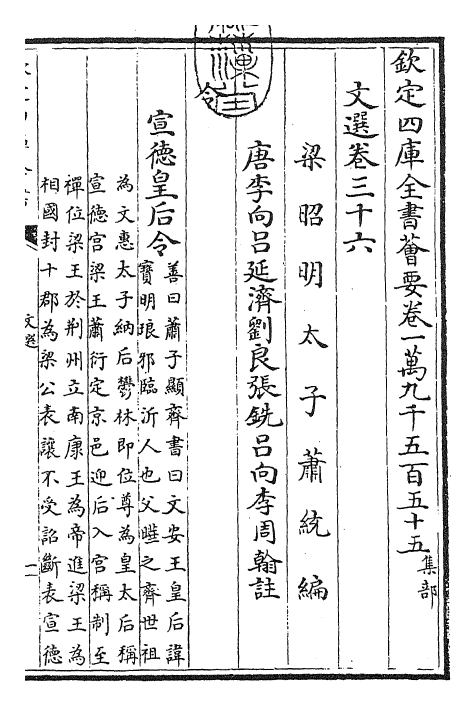 欽定四庫全書薈要卷一萬九千五百五十五 集部
文選卷三十六
梁昭明太子蕭統編
唐李向吕延濟劉良張銑吕向李周翰註
令
宣德皇后令 善曰蕭子顯齊書曰文安王皇后諱
寳明琅邪臨沂人也父曄之齊世祖
為文惠太子納后鬱林即位尊為皇太后稱
宣德宫梁王蕭衍定京邑迎后入宫稱制至
禪位梁王於荆州立南康王為帝進梁王為
相國封十郡為梁公表讓不受詔斷表宣德
文選
一